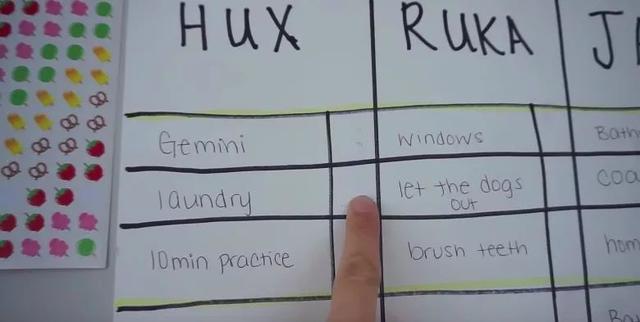 HUX RUKA
Gemini windows
laundry let the dogs
out
10min practice brush teeth